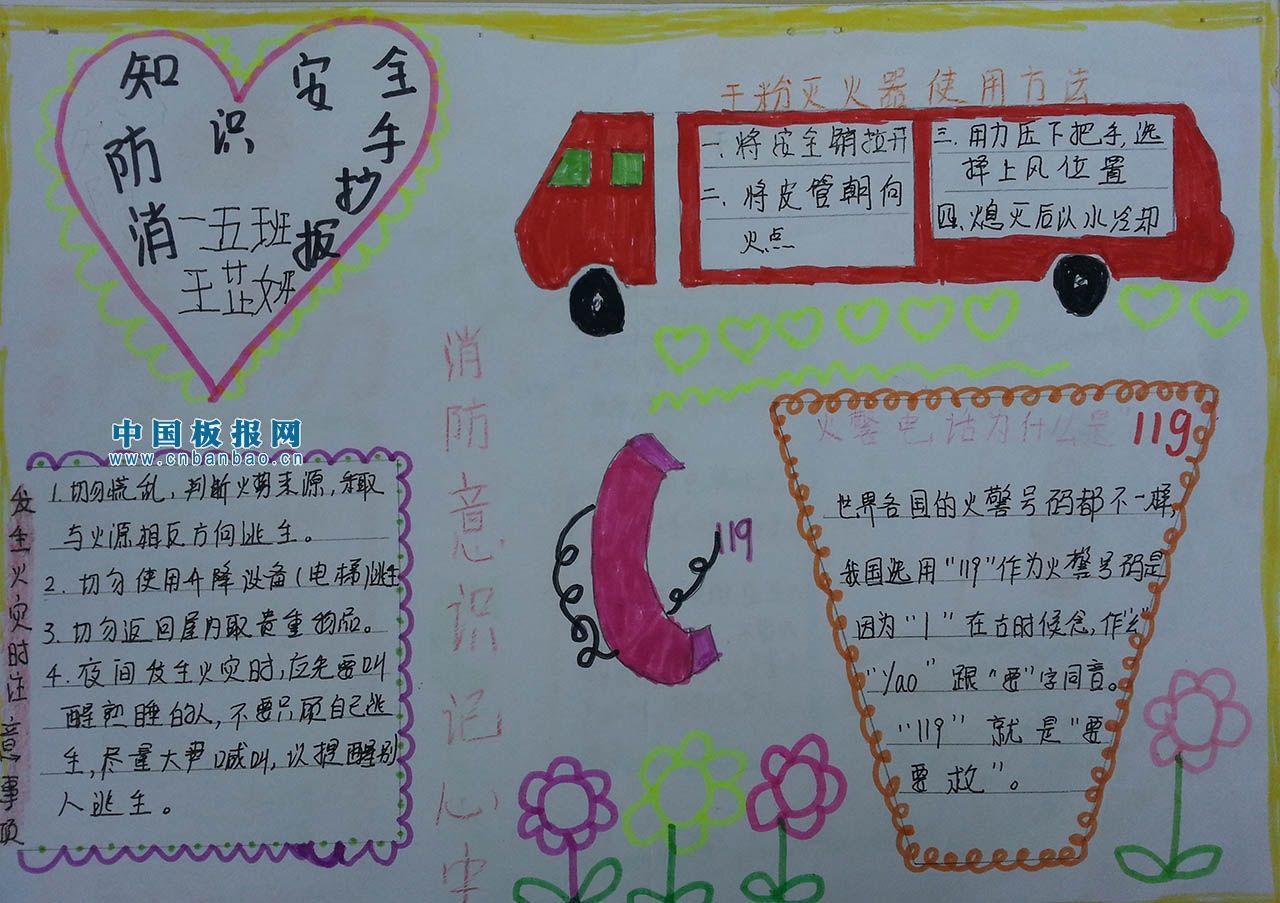 消防知识安全手抄报
一五班
王芷妍
干粉灭火器使用方法
一、将安全销拉开
二、将皮管朝向
火点
三、用力压下把手,选
择上风位置
四、熄灭后以水冷却
消防意识记心中
中国板报网
www.cnbanbao.cn
发生火灾时注意事项
1.切勿慌乱,判断火势来源,采取
与火源相反方向逃生。
2.切勿使用升降设备(电梯)逃生
3.切勿返回屋内取贵重物品。
4.夜间发生火灾时,应先要叫
醒熟睡的人,不要只顾自己逃
生,尽量大声喊叫,以提醒别
人逃生。
119
火警电话为什么是"119
世界各国的火警号码都不一样,
我国选用"119"作为火警号码是
因为"1"在古时候念,作"幺"
"Yao"跟"要"字同音。
"119"就是"要
要救"。